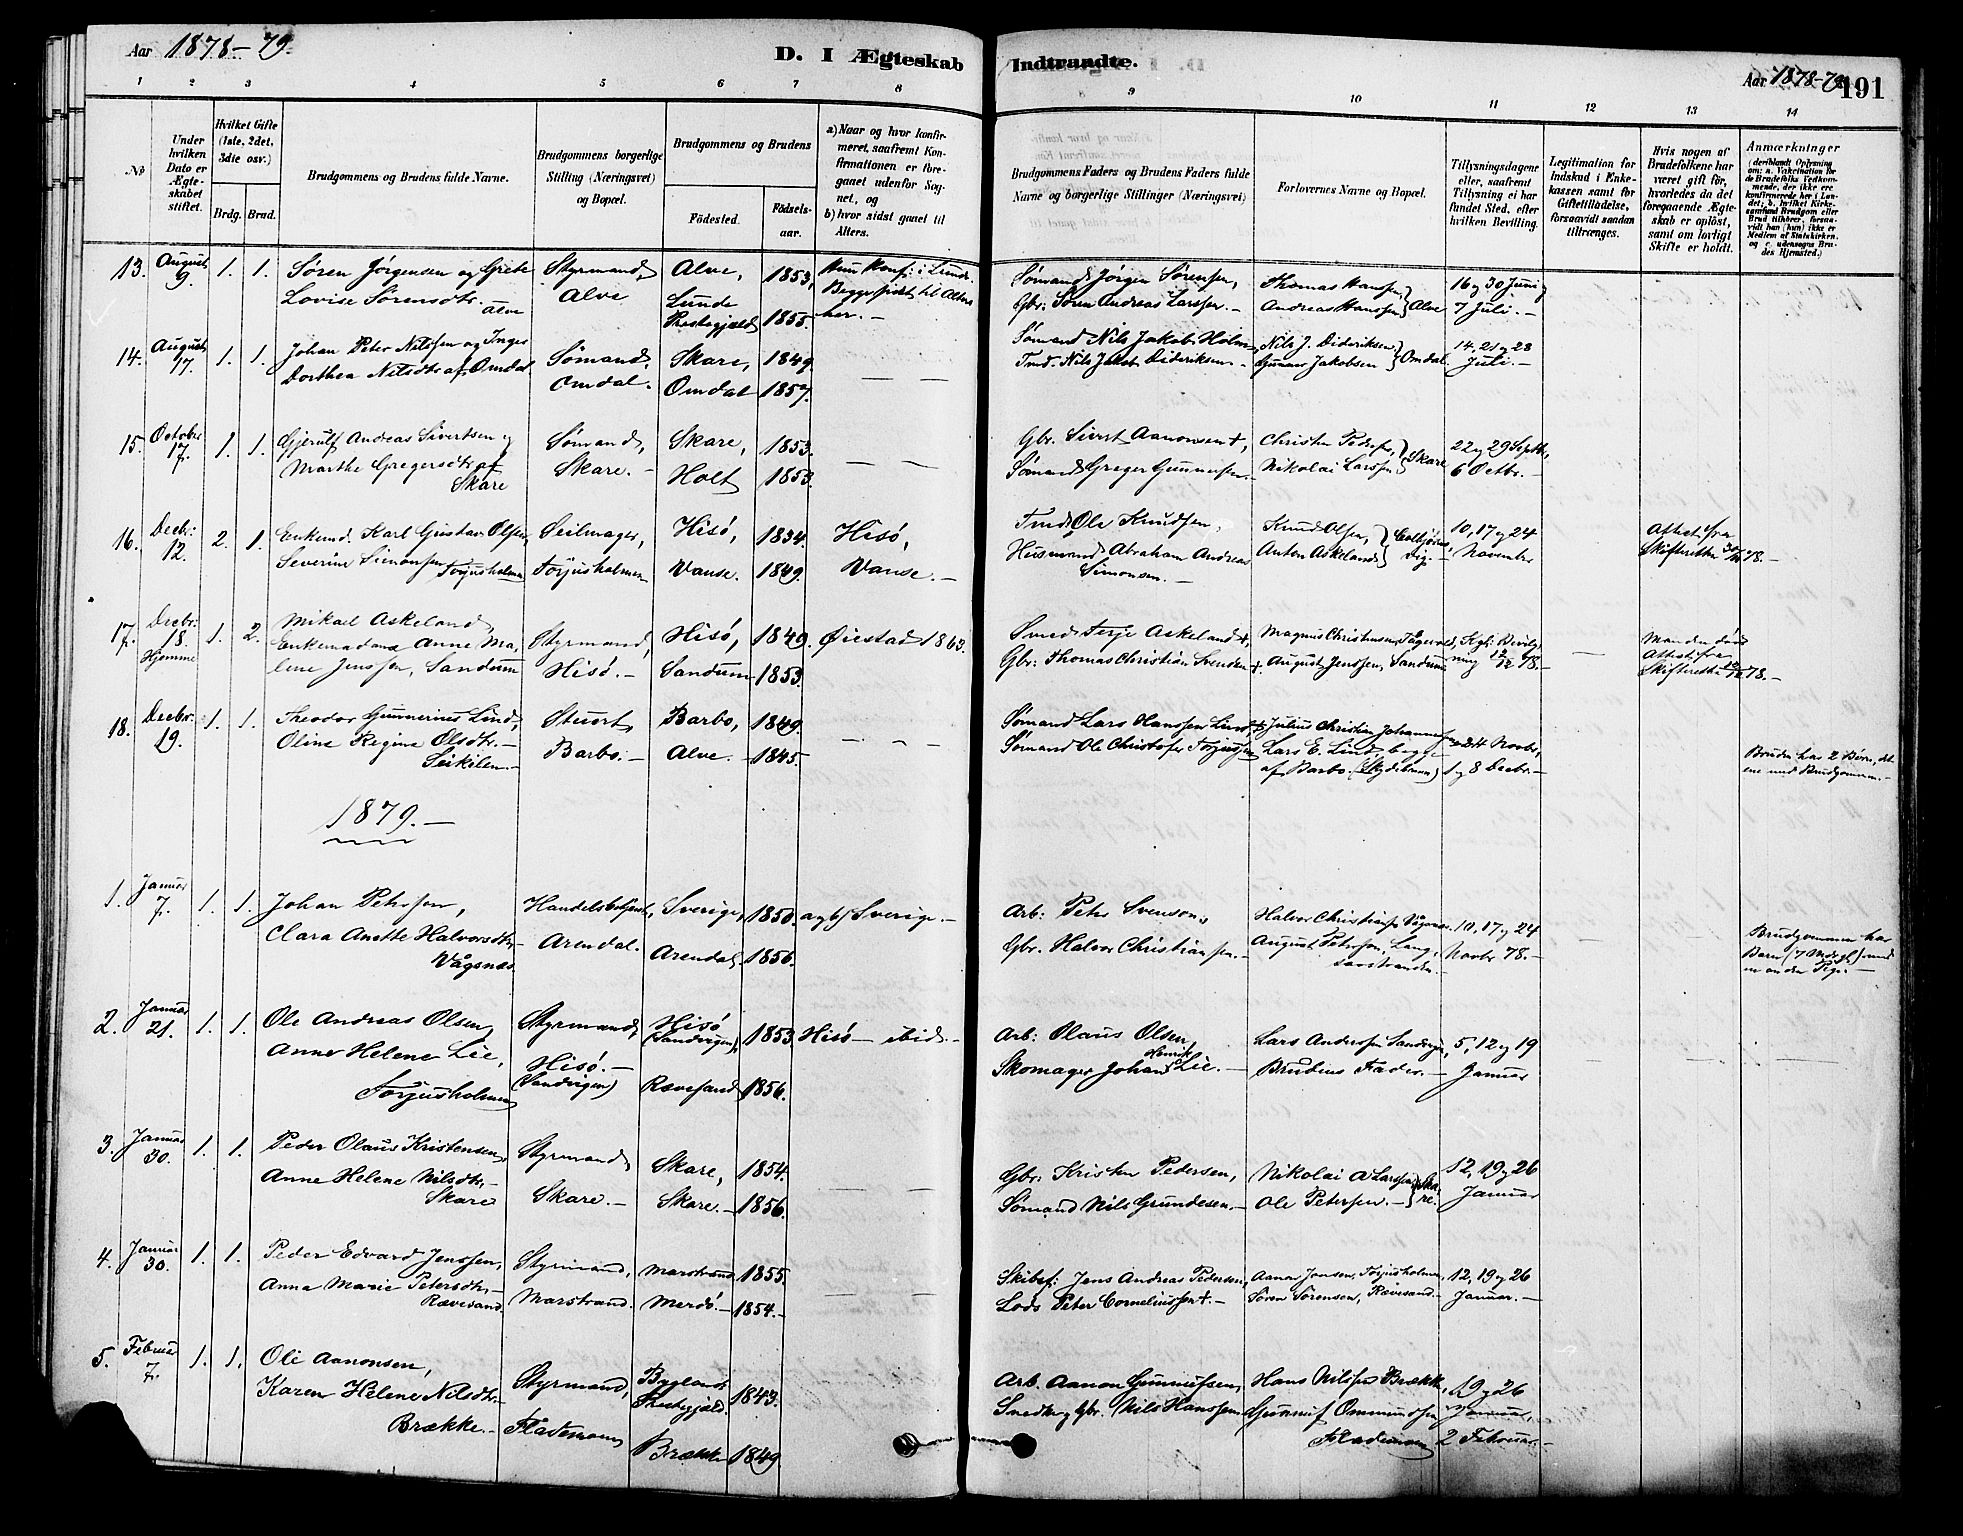 Aar 1878-79.
D. I Ægteskab
Indtraadte.
Aar 1878-79 191
1 2 3 4 5 6 7 8 9 10 11 12 13 14
No
Under hvilken Dato er Ægteskabet stiftet.
Hvilket Gifte (1ste, 2det, 3die osv.)
Brdg. Brud.
Brudgommens og Brudens fulde Navne.
Brudgommens borgerlige Stilling (Næringsvei) og Bopæl.
Brudgommens og Brudens
Födested. Födselsaar.
a) Naar og hvor konfirmeret, saafremt Konfirmationen er foregaaet udenfor Sognet, og
b) hvor sidst gaaet til Alters.
Brudgommens Faders og Brudens Faders fulde Navne og borgerlige Stillinger (Næringsvei)
Forlovernes Navne og Bopæl.
Tillysningsdagene eller, saafremt Tillysning ei har fundet Sted, efter hvilken Bevilling.
Legitimation for Indskud i Enkekassen samt for Giftetilladelse, forsaavidt saadan tiltrænges.
Hvis nogen af Brudefolkene har været gift för, hvorledes da det foregaaende Ægteskab er oplöst, samt om lovligt Skifte er holdt.
Anmærkninger
13. August 9. 1. 1. Søren Jörgensen og Grete Lovise Sørensdtr. Alve
Styrmand, Alve
Alve, 1853,
Lunde Prestegjæld 1855.
Hun konf: i Lunde. Begge sidst til Alters her. -
Sømand Jörgen Sörensen,
Gbr. Sören Andreas Larssen. -
Thomas Hansen, Andreas Hanssen } Alve
16 og 30 Juni og 7 Juli. -
14. August 17. 1. 1. Johan Peter Nilssen og Inger Dorthea Nilsdtr. af Omdal
Sømand, Omdal.
Skare, 1849.
Omdal 1857.
Sømand Nils Jakob Holm,
Tmd. Nils Jakob Dideriksen. -
Nils J. Dideriksen, Gunner Jakobsen } Omdal
14, 21 og 28 Juli. -
15. October 17. 1. 1. Gjerulf Andreas Sivertsen og Marthe Gregersdtr. af Skare
Sømand, Skare. -
Skare, 1853.
Holt 1853.
Gbr. Sivert Aanonsen +,
Sømand Greger Gunnersen. -
Christen Pedersen, Nikolai Larssen } Skare
22 og 29 Septbr, 6 Octbr. -
16. Decbr: 12. 2. 1. Enkemd. Karl Gustav Olsen, Severine Simonsen Torjusholmen
Seilmager, Torjusholmen
Hisö, 1834.
Vanse. 1849.
Hisö, Vanse. -
Tmd. Ole Knudsen,
Husmand Abraham Andreas Simonsen. -
Knud Olsen, Anton Askeland }
10, 17 og 24 November
Attest fra Skifteretten 78. -
17. Decbr: 18. Hjemme 1. 2. Mikael Askeland, Enkemadam Anne Malene Jenssen, Sandum
Styrmand, Hisö. -
Hisö, 1849.
Sandum 1853.
Øiestad 1863.
Smed Terje Askeland +,
Gbr: Thomas Christian Svendsen +.
Magnus Christensen,
August Jenssen, Sandum
Kgl: Bevilgning 12/12 78. -
Manden död Attest fra Skifteretten 78. -
18. Decbr: 19. 1. 1. Theodor Gunnerius Lind, Oline Regine Olsdtr. - Seikilen. -
Stuert, Barbo. -
Barbo, 1849.
Alve. - 1845.
Sømand Lars Hanssen Lind +
Sømand Ole Christofer Torjussen
Julius Christian Johannessen
Lars E. Lind, begge af Barbo.
24 Novbr, 1 og 8 Decbr. -
Bruden har 2 Börn, det ene med Brudgommen. -
1879. -
1. Januar 7. 1. 1. Johan Petersen, Clara Anette Halvorsdtr. Vågsnæs
Handelsbetjent, Arendal.
Sverige, 1850.
Arendal. 1856.
a og b) Sverige. -
Arb: Peter Svenson.
Gbr. Halvor Christiansen. -
Halvor Christiansen Vågsnæs.
August Petersen, Langsævstranden. -
10, 17 og 24 Novbr 78. -
Brudgommen har Barn (7 Mdr gl.) med en anden Pige. -
2. Januar 21. 1. 1. Ole Andreas Olsen, Anne Helene Lie, Torjusholmen
Styrmand, Hisö. - (Sandvigen)
Hisö (Sandvigen), 1853.
Rævesand 1856.
Hisö - ibid. -
Arb: Olaus Olsen,
Skomager Johan Henrik Lie. -
Lars Andersen Sandvigen,
Brudens Fader. -
5, 12 og 19 Januar
3. Januar 30. 1. 1. Peder Olaus Kristensen, Anne Helene Nilsdtr. - Skare
Styrmand, Skare. -
Skare, 1854.
Skare. - 1856.
Gbr: Kristen Pedersen,
Sømand Nils Grundesen. -
Nikolai A Larssen, Ole Petersen. - } Skare.
12, 19 og 26 Januar
4. Januar 30. 1. 1. Peder Edvard Jenssen, Anna Marie Petersdtr. - Rævesand
Styrmand, Marstrand.
Marstrand 1855.
Merdö. - 1854. -
Skibsf: Jens Andreas Pedersen,
Lods Peter Corneliussen +. -
Aanon Jensen, Torjusholmen,
Sören Sörensen, Rævesand. -
12, 19 og 26 Januar. -
5. Februar 7. 1. 1. Ole Aanonsen, Karen Helene Nilsdtr. - Brække. -
Styrmand, Flademoen
Byglands Prestegjæld. 1843.
Brække 1849.
Arb. Aanon Gunnufsen,
Snedker og Gbr. Nils Hanssen
Hans Nilsen Brække,
Gunnuf Ommundsen Flademoen
19 og 26 Januar, 2 Februar. -